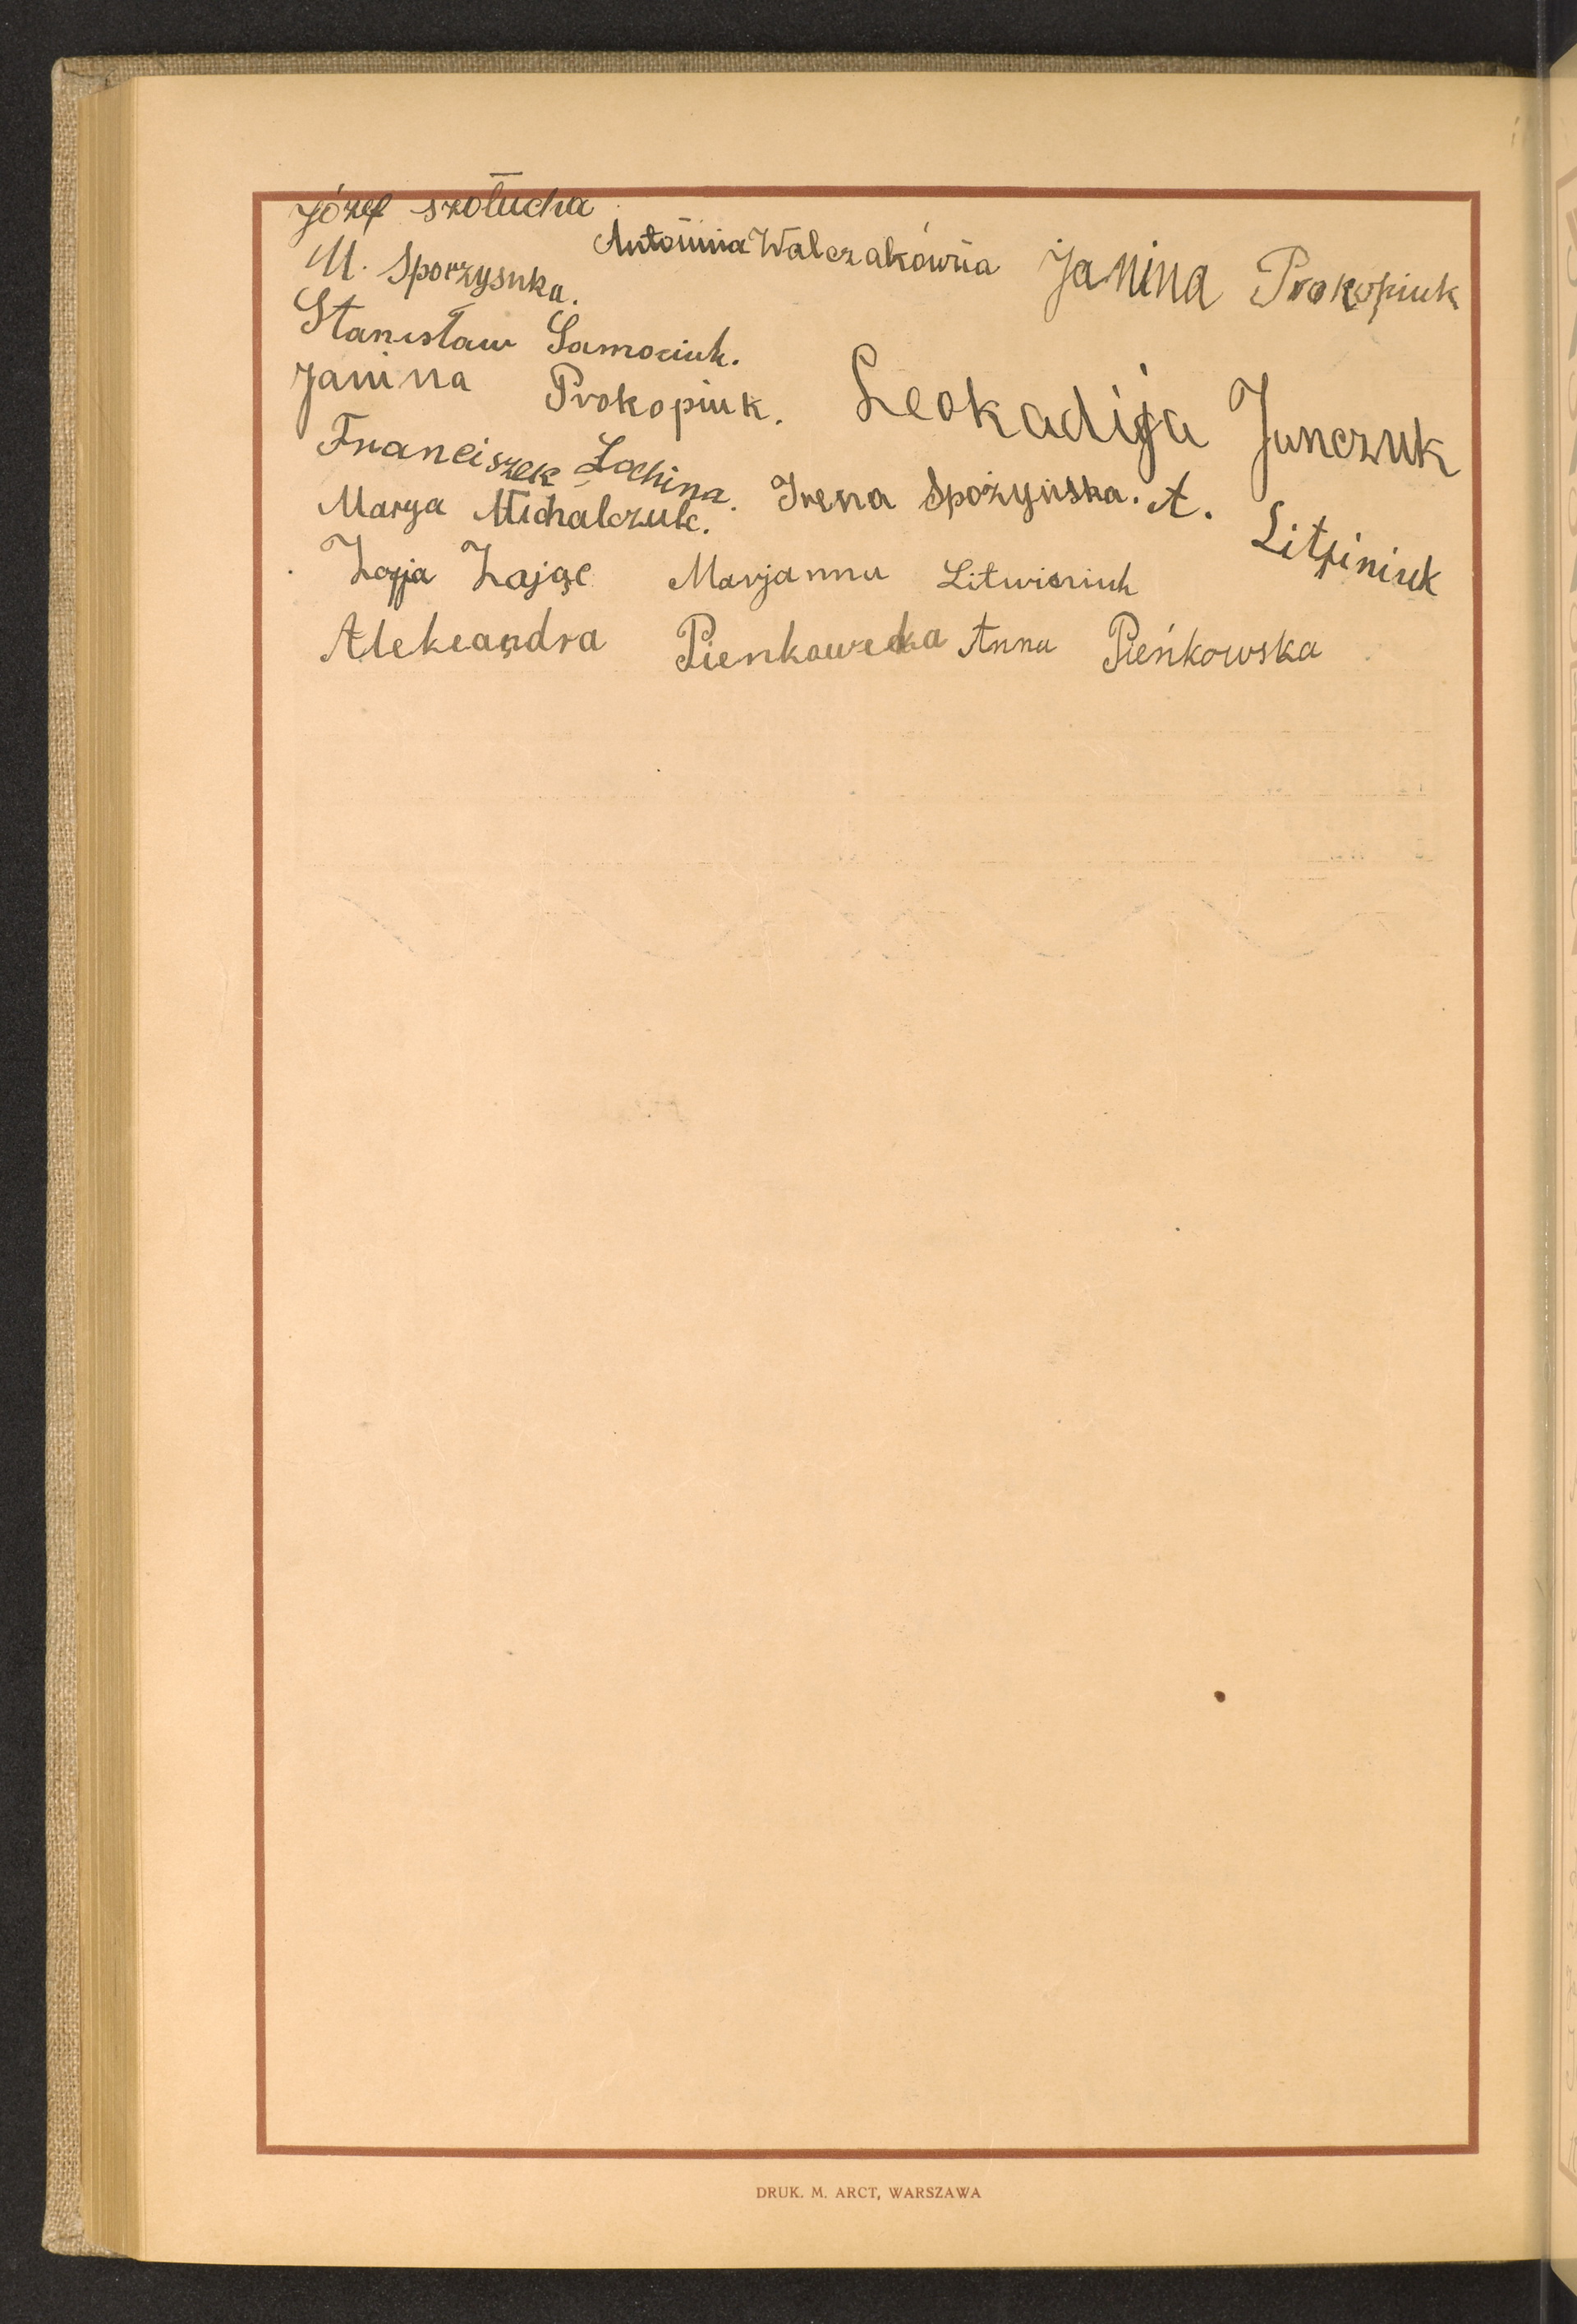 Józef szołucha
Antonina Walczakówna Janina Prokopiuk
M. Sporzysnka.
Stanisław Samociuk.
Janina Prokopiuk. Leokadija Junczuk
Franciszek Lochina.
Marya Michalczuk. Irena Spożyńska. A. Litpiniuk
Zofja Zając Marjanna Litwiniuk
Aleksandra Pienkowska Anna Pieńkowska
DRUK. M. ARCT, WARSZAWA